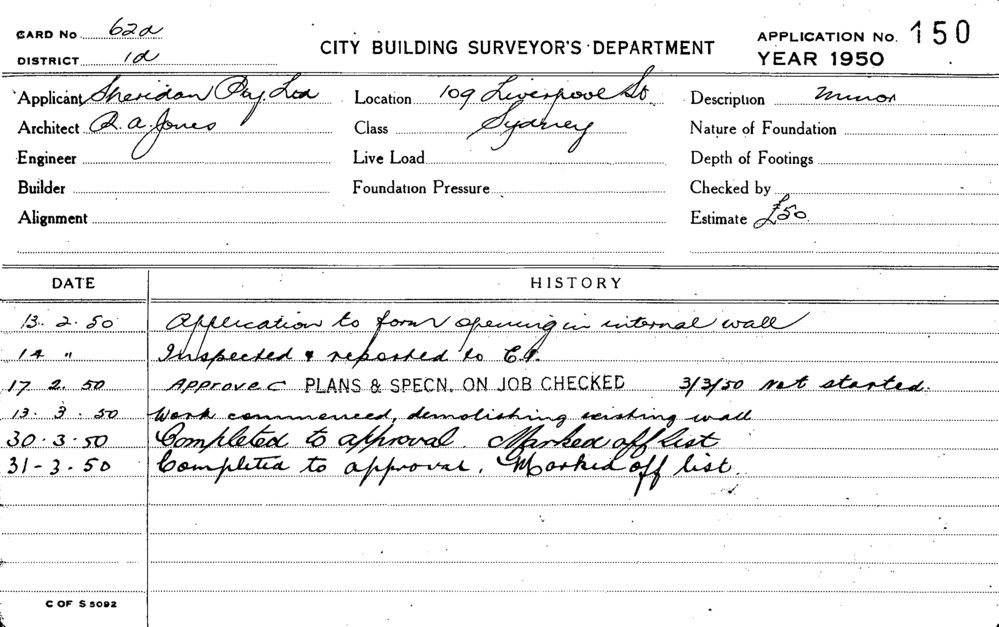 CARD No 62a
DISTRICT 1a
CITY BUILDING SURVEYOR'S DEPARTMENT
APPLICATION No. 150
YEAR 1950
Applicant Sheridan Pty. Ltd
Location 109 Liverpool St.
Description Minor
Architect R. A. Jones
Class Sydney
Nature of Foundation
Engineer
Live Load
Depth of Footings
Builder
Foundation Pressure
Checked by
Alignment
Estimate £50
DATE HISTORY
13. 2. 50 Application to form opening in internal wall
14 " Inspected & reported to
17 2. 50 Approved PLANS & SPECN. ON JOB CHECKED 3/3/50 Not started.
13. 3. 50 Work commenced, demolishing existing wall
30. 3. 50 Completed to approval. Marked off list
31 - 3. 50 Completed to approval. Marked off list
C OF S 5092